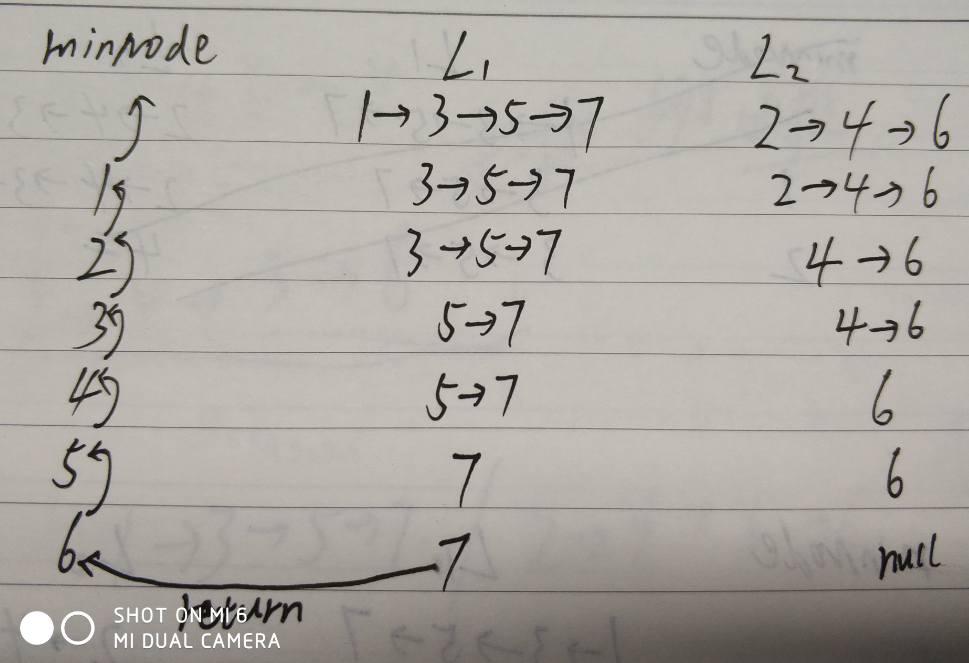 minnode L1 L2
1→3→5→7 2→4→6
1 3→5→7 2→4→6
2 3→5→7 4→6
3 5→7 4→6
4 5→7 6
5 7 6
6 7 null
return
SHOT ON MI 6
MI DUAL CAMERA